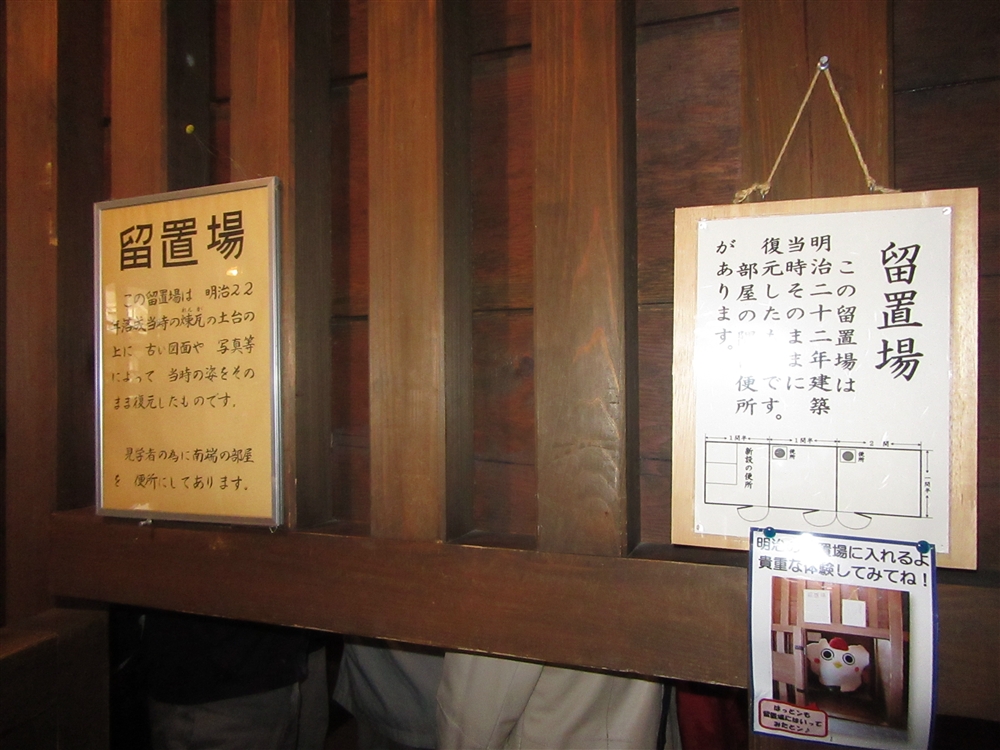 留置場
この留置場は 明治22
年落成当時の煉瓦の土台の
れんが
上に 古い図面や 写真等
によって 当時の姿をその
まま復元したものです.
見学者の為に南端の部屋
を 便所にしてあります.
留置場
この留置場は
明治二十二年建築
当時そのままに
復元したものです。
部屋の 便所
があります。
1間半
1間半
2間
新設の便所
便所
便所
一間半
明治の留置場に入れるよ
貴重な体験してみてね!
はっとンも
留置場にはいって
みたとン♪